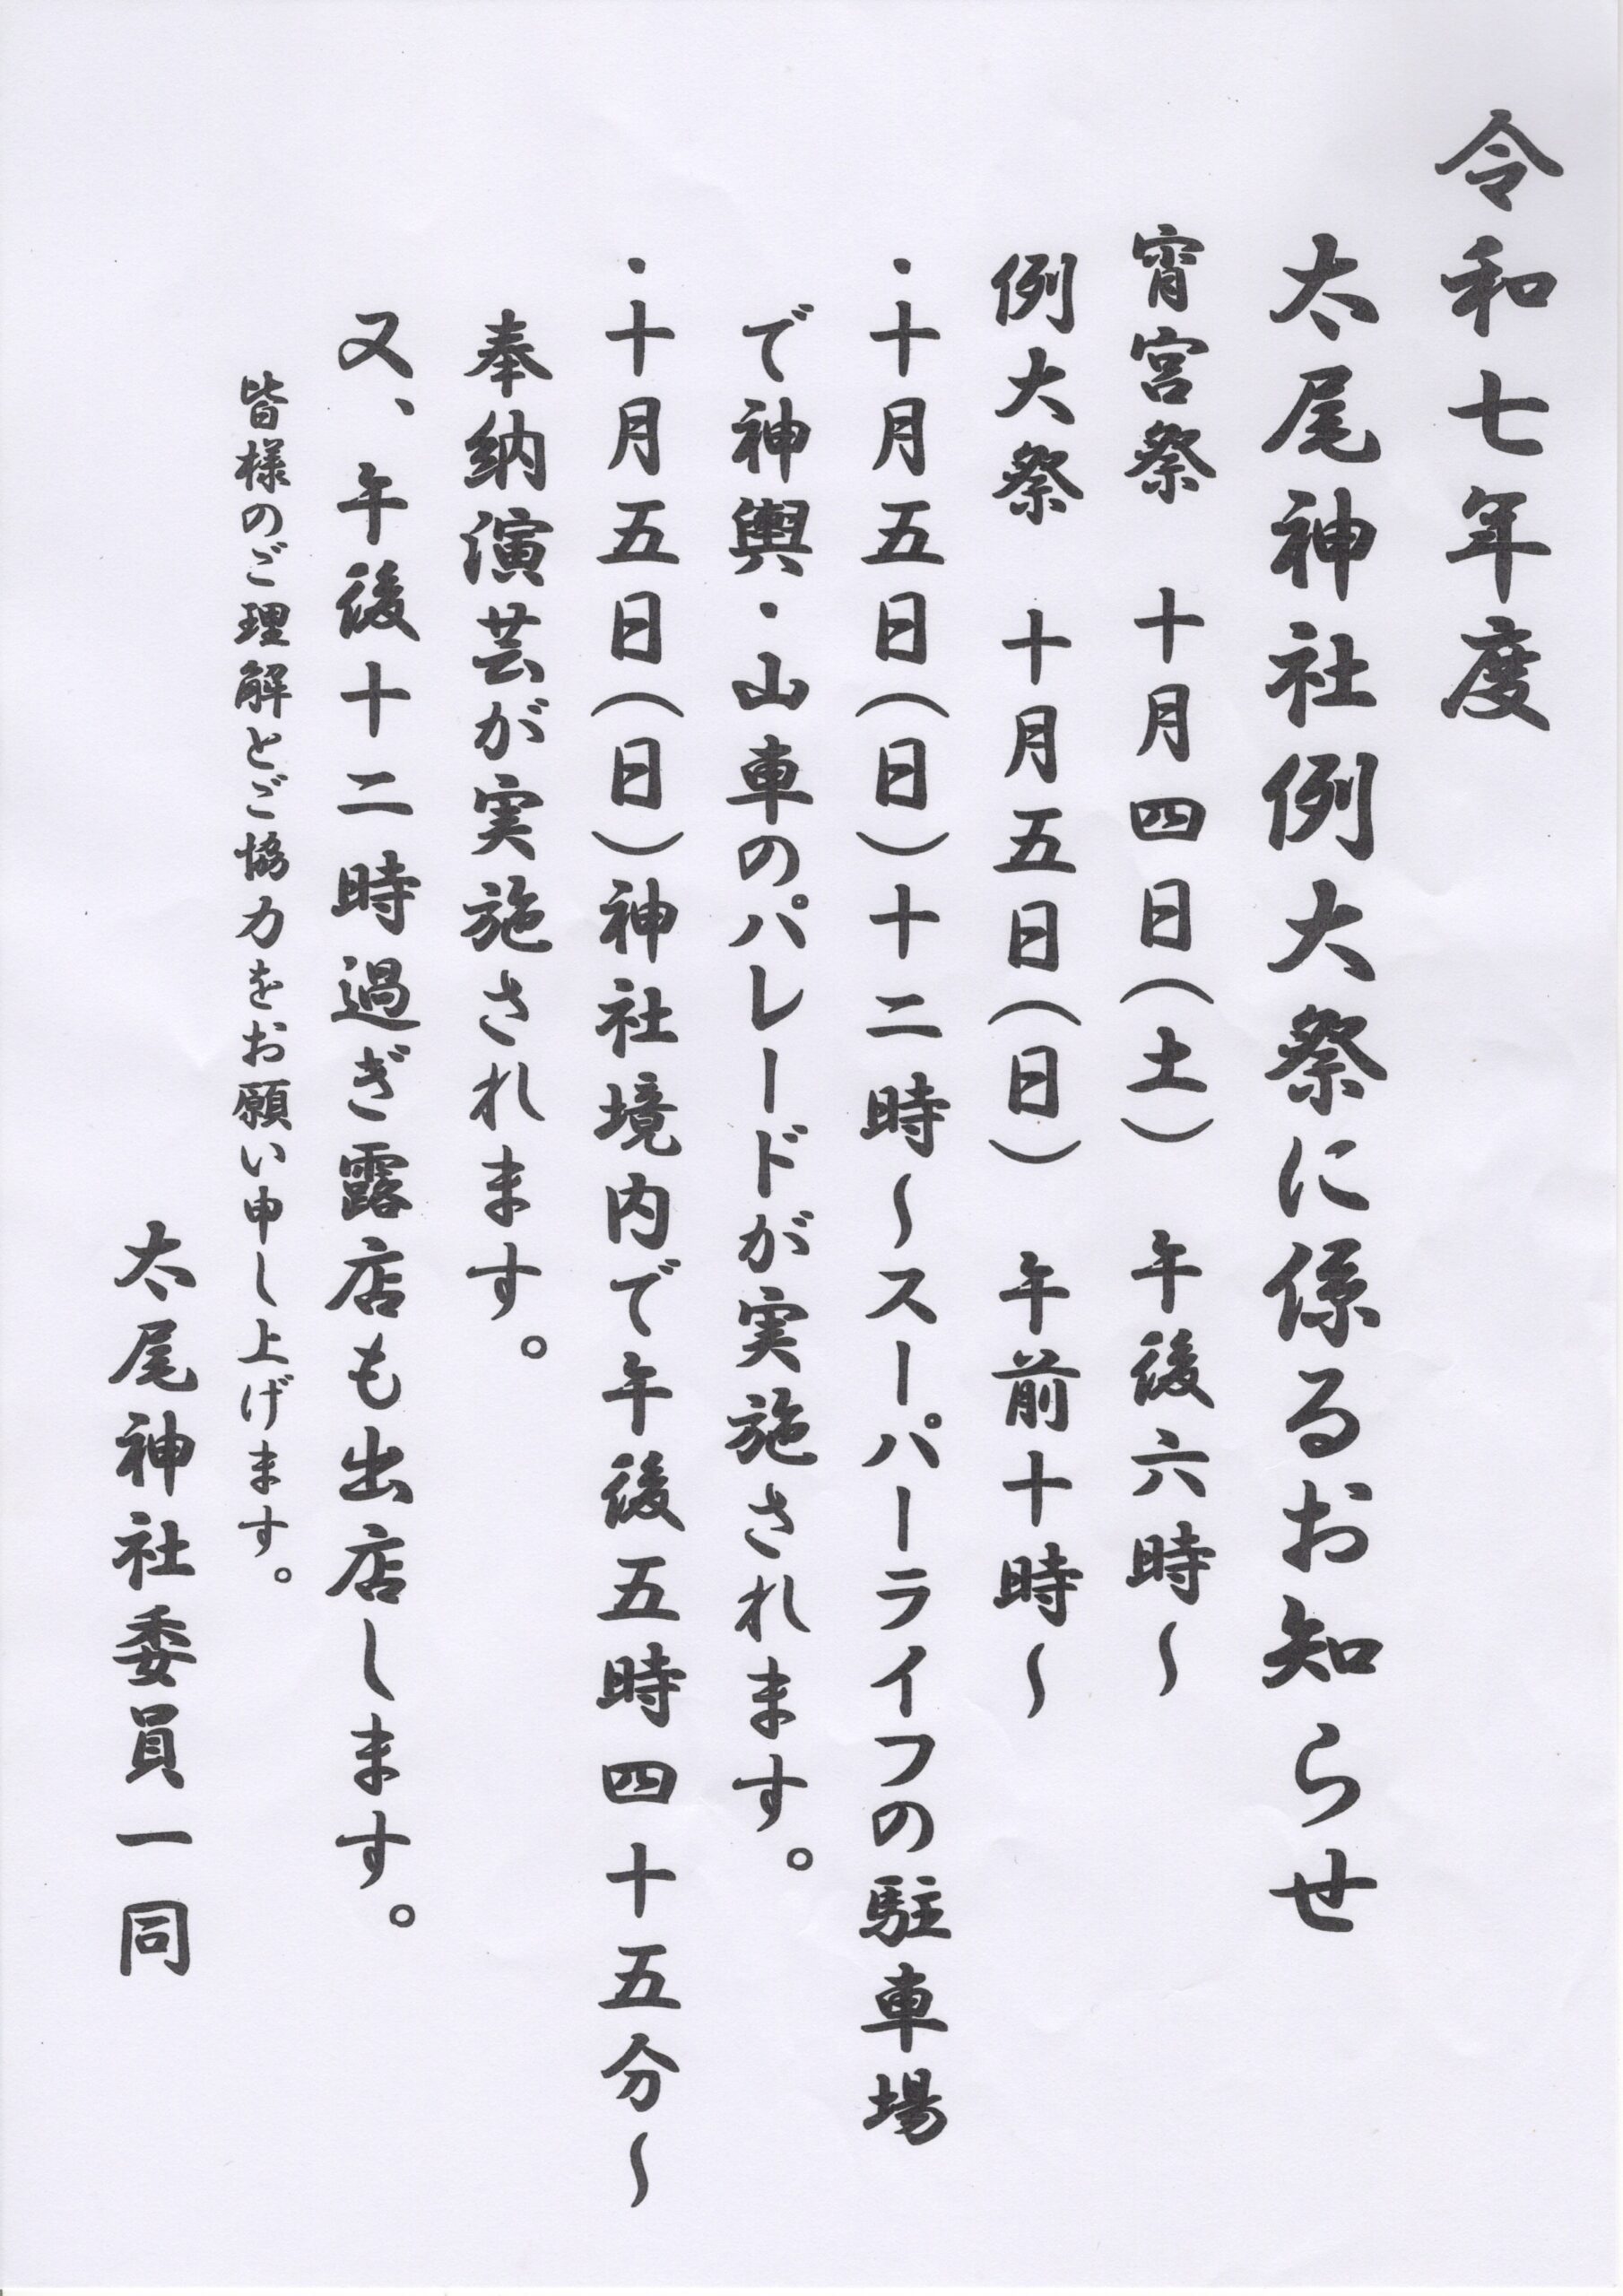 令和七年度
太尾神社例大祭に係るお知らせ
宵宮祭　十月四日（土）　午後六時～
例大祭　十月五日（日）　午前十時～
・十月五日（日）十二時～スーパーライフの駐車場
で神輿・山車のパレードが実施されます。
・十月五日（日）神社境内で午後五時四十五分～
奉納演芸が実施されます。
又、午後十二時過ぎ露店も出店します。
皆様のご理解とご協力をお願い申し上げます。
太尾神社委員一同